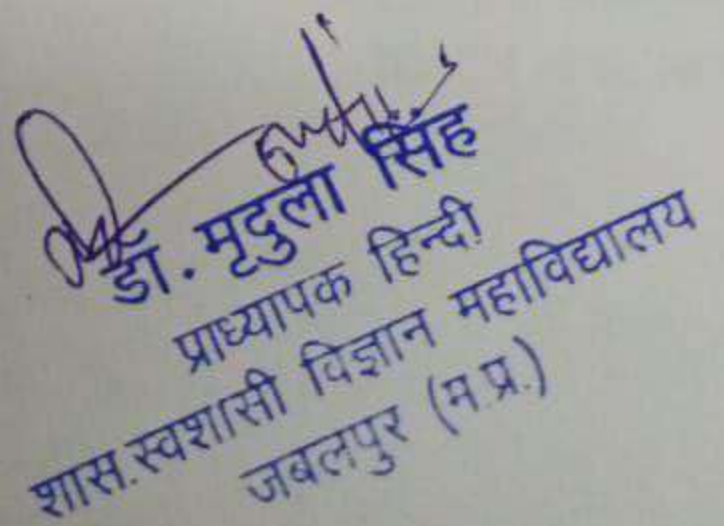 डॉ. मृदुला सिंह
प्राध्यापक हिन्दी
शास.स्वशासी विज्ञान महाविद्यालय
जबलपुर (म.प्र.)